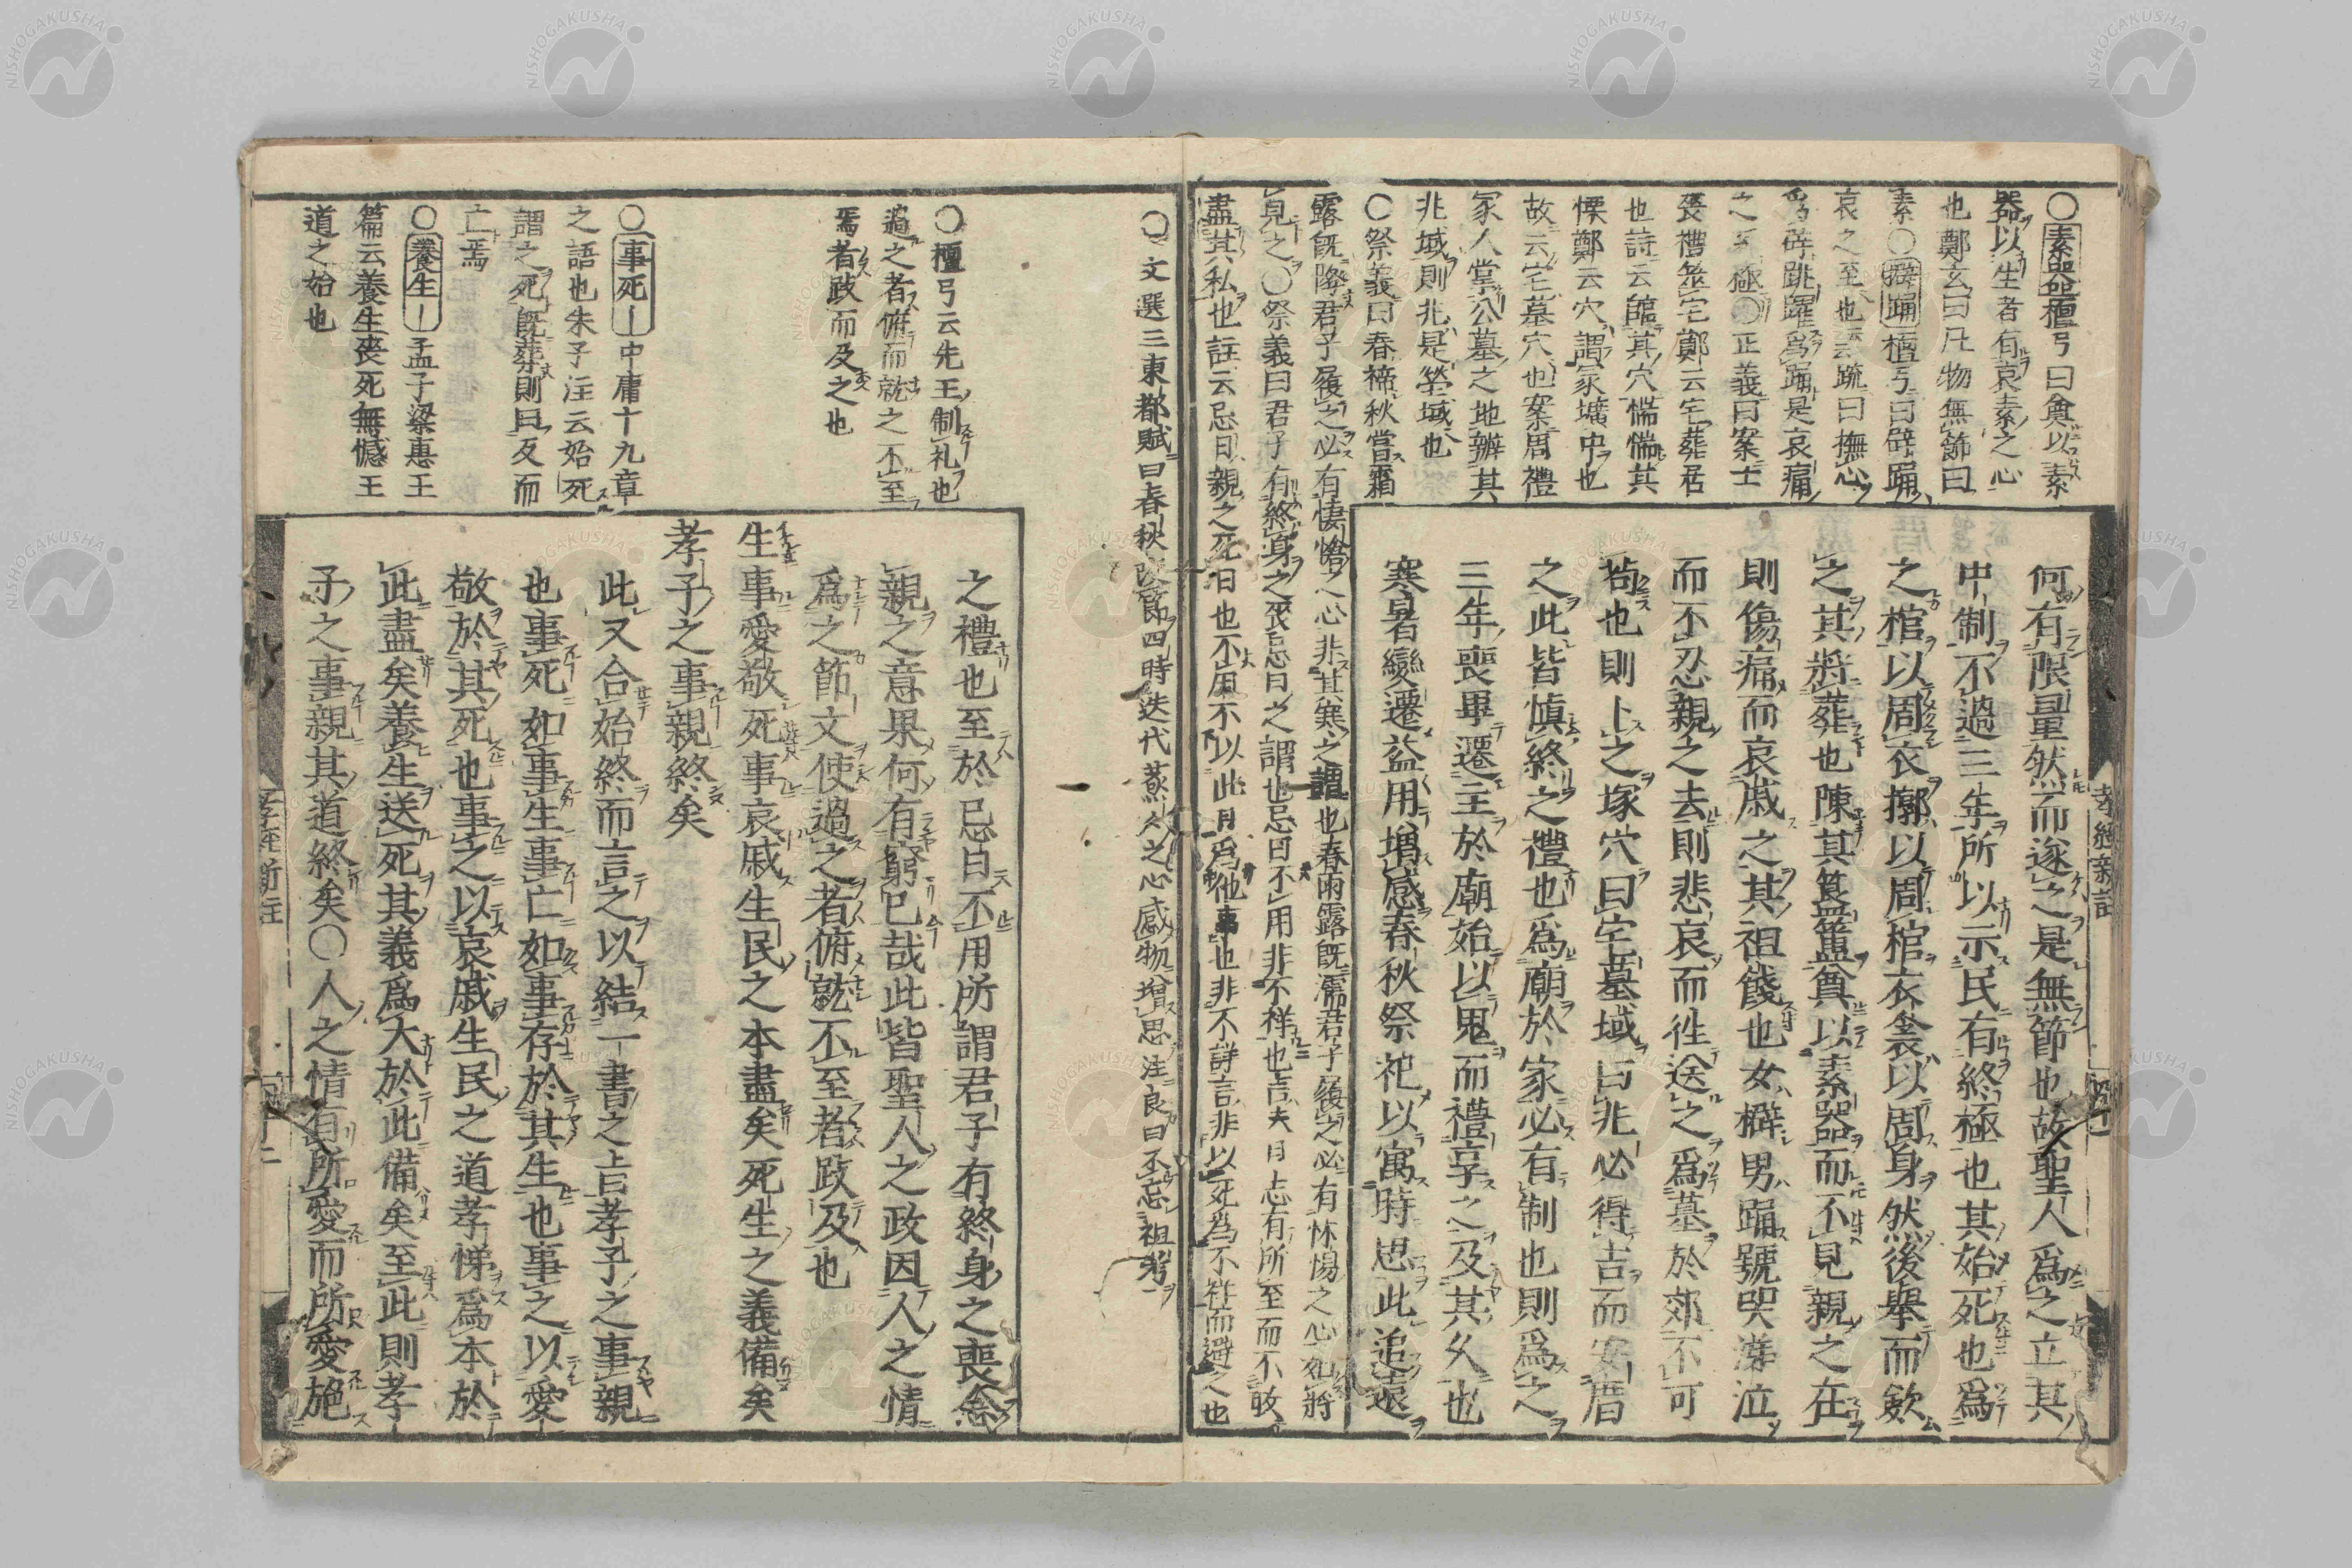 ○素器檀弓曰奠以素
器以生者有哀素之心
也鄭玄曰凡物無飾曰
素○擗踊檀弓曰辟踊
哀之至也疏曰撫心
爲辟跳躍爲踊是哀痛
之至極○正義曰案士
喪禮筮宅鄭云宅葬居
也詩云臨其穴惴惴其
慄鄭云穴謂冢壙中也
故云宅墓穴也案周禮
冢人掌公墓之地辨其
兆域則兆是塋域也
○祭義曰春禘秋嘗霜
露既降君子履之必有悽愴之心非其寒之謂也春雨露既濡君子履之必有怵惕之心如將
見之○祭義曰君子有終身之喪忌日之謂也忌日不用非不祥也言夫日志有所至而不敢
盡其私也註云忌日親之死日也不用不以此日爲他事也非不詳言非以死爲不祥而避之也
何有限量然而遂之是無節也故聖人爲之立其
中制不過三年所以示民有終極也其始死也爲
之棺以周衣槨以周棺衣衾以周身然後舉而斂
之其將葬也陳其簠簋奠以素器而不見親之在
則傷痛而哀慼之其祖餞也女擗男踊號哭涕泣
而不忍親之去則悲哀而往送之爲墓於郊不可
苟也則卜之塚穴曰宅墓域曰兆必得吉而安厝
之此皆愼終之禮也爲廟於家必有制也則爲之
三年喪畢遷主於廟始以鬼而禮享之及其久也
寒暑變遷益用増感春秋祭祀以寓時思此追遠
孝經新註
○文選三東都賦曰春秋四時迭代蒸人之心感物增思注良曰不忘祖考
○檀弓云先王制礼也
過之者俯而就之不至
焉者跂而及之也
○事死｜中庸十九章
之語也朱子注云始死
謂之死既葬則曰反而
亡焉
○養生｜孟子梁惠王
篇云養生喪死無憾王
道之始也
之禮也至於忌日不用所謂君子有終身之喪念
親之意果何有窮已哉此皆聖人之政因人之情
爲之節文使過之者俯就不至者跂及也
生事愛敬死事哀慼生民之本盡矣死生之義備矣
孝子之事親終矣
此又合始終而言之以結一書之旨孝子之事親
也事死如事生事亡如事存於其生也事之以愛
敬於其死也事之以哀慼生民之道孝悌爲本於
此盡矣養生送死其義爲大於此備矣至此則孝
子之事親其道終矣○人之情有所愛而所愛施
孝經新註
NISHOGAKUSHA
NISHOGAKUSHA
NISHOGAKUSHA
NISHOGAKUSHA
NISHOGAKUSHA